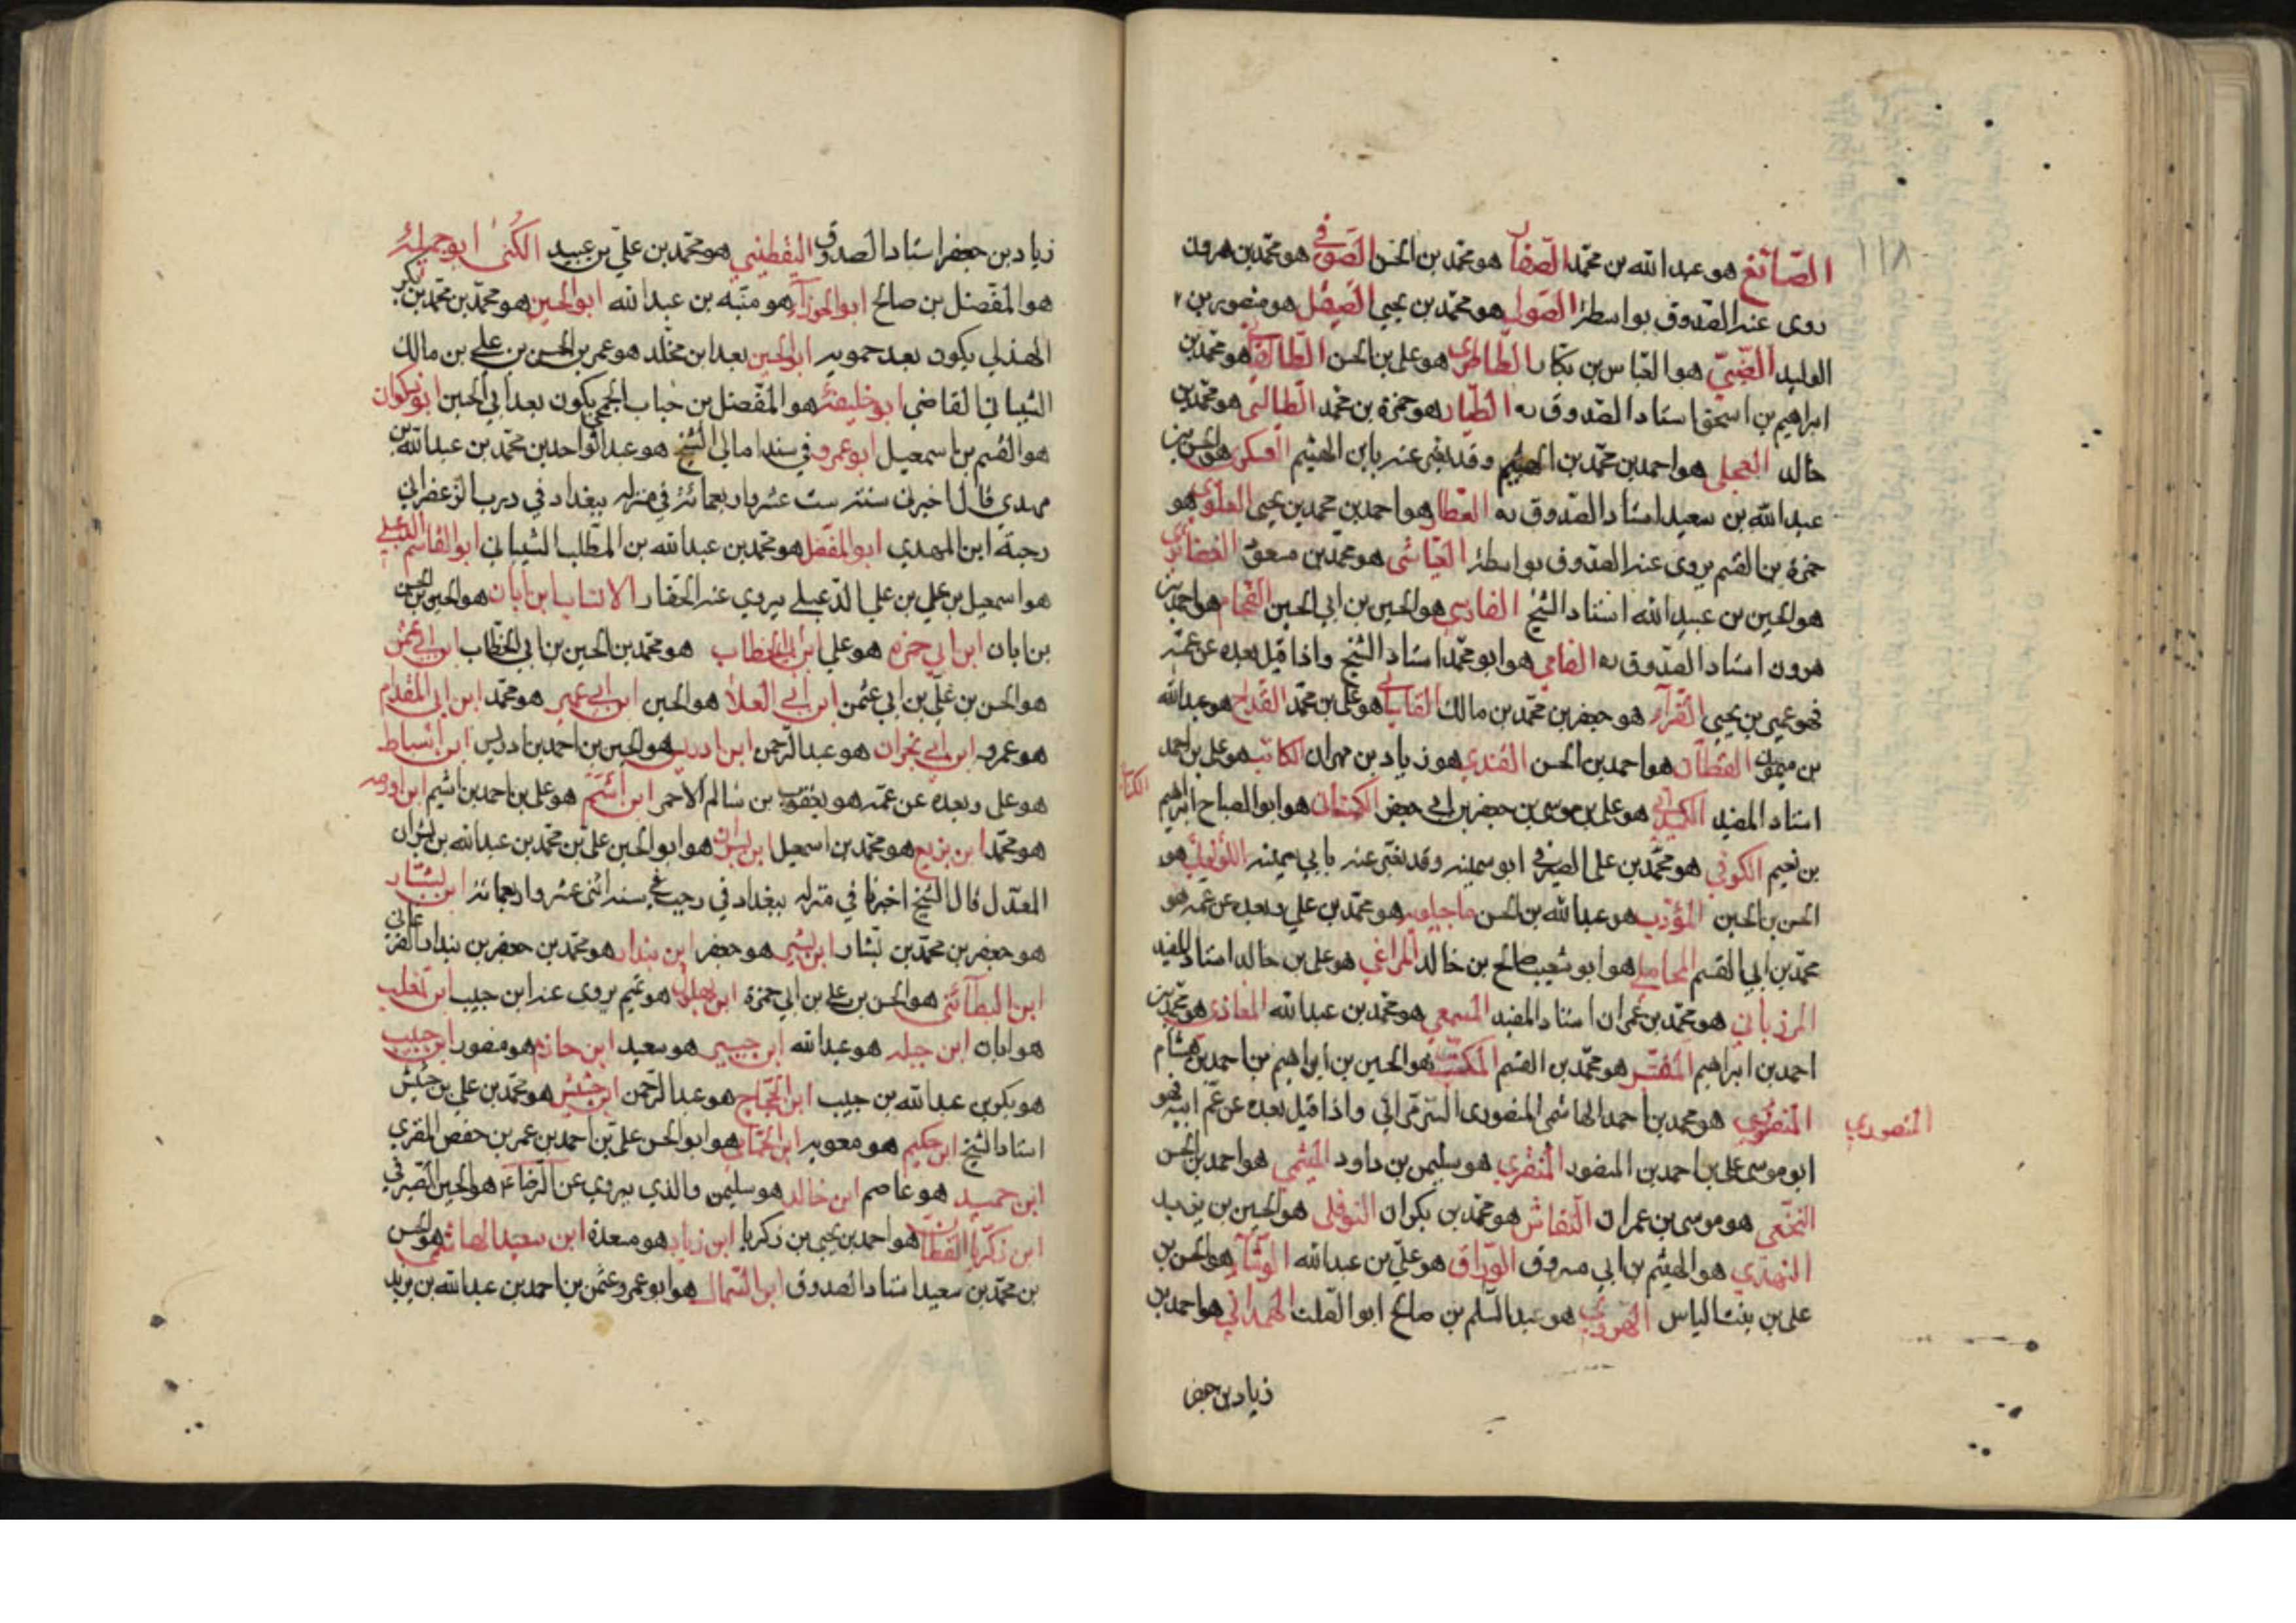 الصائغ هو عبد الله بن محمد الصفار هو محمد بن الحسن الصوفي هو محمد بن هرون
روى عنه الصدوق بواسطة الصولي هو محمد بن يحيى الصيقل هو منصور بن
الوليد الضبي هو العباس بن بكار الطاطري هو علي بن الحسن الطالقاني هو محمد بن
ابراهيم بن اسحق استاد الصدوق ره الطيار هو حمزة بن محمد الطيالسي هو محمد بن
خالد العجلي هو احمد بن محمد بن الهيثم وقد يعبر عنه بابن الهيثم العسكري هو الحسن بن
عبد الله بن سعيد استاد الصدوق ره العطار هو احمد بن محمد بن يحيى العلوي هو
حمزة بن القسم يروى عنه الصدوق بواسطة العياشي هو محمد بن مسعود الغضايري
هو الحسين بن عبيد الله استاد الشيخ الفارسي هو الحسين بن ابي الحسين الفحام هو احمد بن
هرون استاد الصدوق ره الفامي هو ابو محمد استاد الشيخ واذا قيل بعده عن عمه
فهو عمر بن يحيى الفزاري هو جعفر بن محمد بن مالك القاساني هو علي بن محمد القداح هو عبد الله
بن ميمون القطان هو احمد بن الحسن القندي هو زياد بن مهران الكاتب هو علي بن احمد
استاد المفيد الكميداني هو علي بن موسى بن جعفر بن ابي جعفر الكناني هو ابو الصباح ابراهيم
الكناني
بن نعيم الكوفي هو محمد بن علي الصيرفي ابو سمينه وقد يعبر عنه بابي سمينه اللؤلؤي هو
الحسن بن الحسين المؤدب هو عبد الله بن الحسن ماجيلويه هو محمد بن علي وبعده عن عمه هو
محمد بن ابي القسم المحاملي هو ابو شعيب صالح بن خالد المراغي هو علي بن خالد استاد المفيد
المرزباني هو محمد بن عمران استاد المفيد المسمعي هو محمد بن عبد الله المعاذي هو محمد بن
احمد بن ابراهيم المفسر هو محمد بن القسم المكتب هو الحسين بن ابراهيم بن احمد بن هشام
المنصوري هو محمد بن احمد الهاشمي المنصوري السرمرائي واذا قيل بعده عن عم ابيه فهو
المنصوري
ابو موسى علي بن احمد بن المنصور المنقري هو سليمن بن داود الميثمي هو احمد بن الحسن
النخعي هو موسى بن عمران النقاش هو محمد بن بكران النوفلي هو الحسين بن يزيد
النهدي هو الهيثم بن ابي مسروق الوراق هو علي بن عبد الله الوشاء هو الحسن بن
علي بن بنت الياس الهروي هو عبد السلم بن صالح ابو الصلت الهمداني هو احمد بن
زياد بن جعفر
١١٨
زياد بن جعفر استاد الصدوق اليقطيني هو محمد بن علي بن عبيد الكنى ابو جميلة
هو المفضل بن صالح ابو الجوزاء هو منبه بن عبد الله ابو الحسين هو محمد بن محمد بن بكر
الهذلي يكون بعد حمويه ابو الحسين بعد ابن مخلد هو عمر بن الحسن بن علي بن مالك
الشيباني القاضي ابو خليفة هو المفضل بن حباب الجمحي يكون بعد ابي الحسين ابو ذكوان
هو القسم بن اسمعيل ابو عمرو في سند امالي الشيخ هو عبد الواحد بن محمد بن عبد الله بن
مهدي قال اخبرني سنة ست عشر واربعمائة في منزله ببغداد في درب الزعفراني
رحبة ابن المهدي ابو المفضل هو محمد بن عبد الله بن المطلب الشيباني ابو القاسم الدعبلي
هو اسمعيل بن علي بن علي الدعبلي يروي عنه الحفار الانساب ابن ابان هو الحسين بن الحسن
بن ابان ابن ابي حمزه هو علي ابن ابي الخطاب هو محمد بن الحسين بن ابي الخطاب ابن ابي عثمن
هو الحسن بن علي بن ابي عثمن ابن ابي العلاء هو الحسين ابن ابي عمير هو محمد ابن ابي المقدام
هو عمرو ابن ابي نجران هو عبد الرحمن ابن ادريس هو الحسين بن احمد بن ادريس ابن اسباط
هو علي وبعده عن عمه هو يعقوب بن سالم الاحمر ابن اشيم هو علي بن احمد بن اشيم ابن اورمه
هو محمد ابن بزيع هو محمد بن اسمعيل ابن بشران هو ابو الحسين علي بن محمد بن عبد الله بن بشران
المعدل قال الشيخ اخبرنا في منزله ببغداد في رجب سنه اثنى عشر واربعمائة ابن بشار
هو جعفر بن محمد بن بشار ابن بشير هو جعفر ابن بندار هو محمد بن جعفر بن بندار الفرغاني
ابن البطائني هو الحسن بن علي بن ابي حمزة ابن بهلول هو تميم يروى عنه ابن حبيب ابن تغلب
هو ابان ابن جبله هو عبد الله ابن جبير هو سعيد ابن حازم هو منصور ابن حبيب
هو بكر بن عبد الله بن حبيب ابن الحجاج هو عبد الرحمن ابن حشيش هو محمد بن علي بن حشيش
استاد الشيخ ابن حكيم هو معويه ابن الحمامي هو ابو الحسن علي بن احمد بن عمر بن حفص المقري
ابن حميد هو عاصم ابن خالد هو سليمن والذي يروي عن الرضا ع هو الحسين الصيرفي
ابن زكريا القطان هو احمد بن يحيى بن زكريا ابن زياد هو مسعدة ابن سعيد الهاشمي هو الحسن
بن محمد بن سعيد استاد الصدوق ابن السماك هو ابو عمرو عثمن بن احمد بن عبد الله بن يزيد